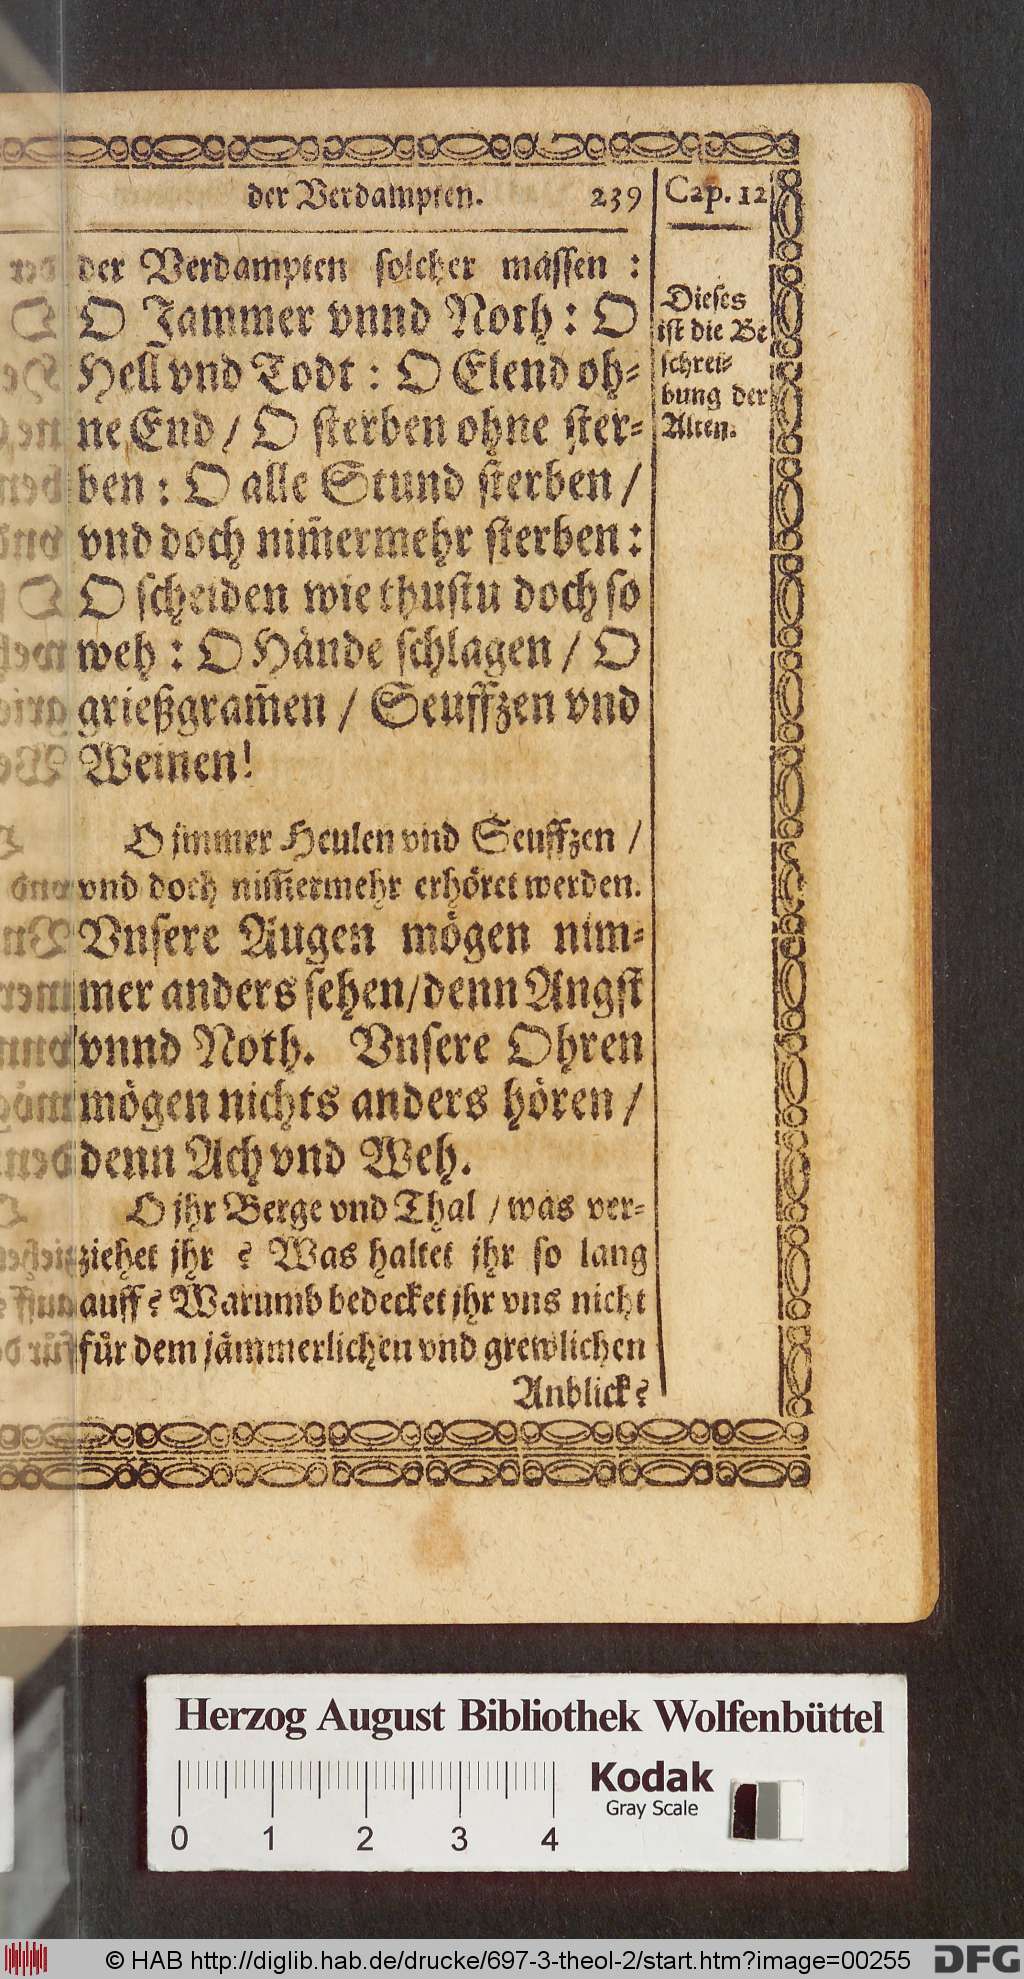 der Verdampten. 239 Cap. 12
der Verdampten solcher massen :
O Jammer vnnd Noth : O
Hell vnd Todt : O Elend oh-
ne End / O sterben ohne ster-
ben : O alle Stund sterben /
vnd doch nim̃ermehr sterben :
O scheiden wie thustu doch so
weh : O Hände schlagen / O
grießgram̃en / Seuffzen vnd
Weinen!
O jmmer Heulen vnd Seuffzen /
vnd doch nim̃ermehr erhöret werden.
Vnsere Augen mögen nim-
mer anders sehen/denn Angst
vnnd Noth. Vnsere Ohren
mögen nichts anders hören /
denn Ach vnd Weh.
O jhr Berge vnd Thal / was ver-
ziehet jhr ? Was haltet jhr so lang
auff? Warumb bedecket jhr vns nicht
für dem jämmerlichen vnd grewlichen
Anblick?
Dieses
ist die Be
schrei-
bung der
Alten.
Herzog August Bibliothek Wolfenbüttel
Kodak
Gray Scale
0 1 2 3 4
© HAB http://diglib.hab.de/drucke/697-3-theol-2/start.htm?image=00255 DFG